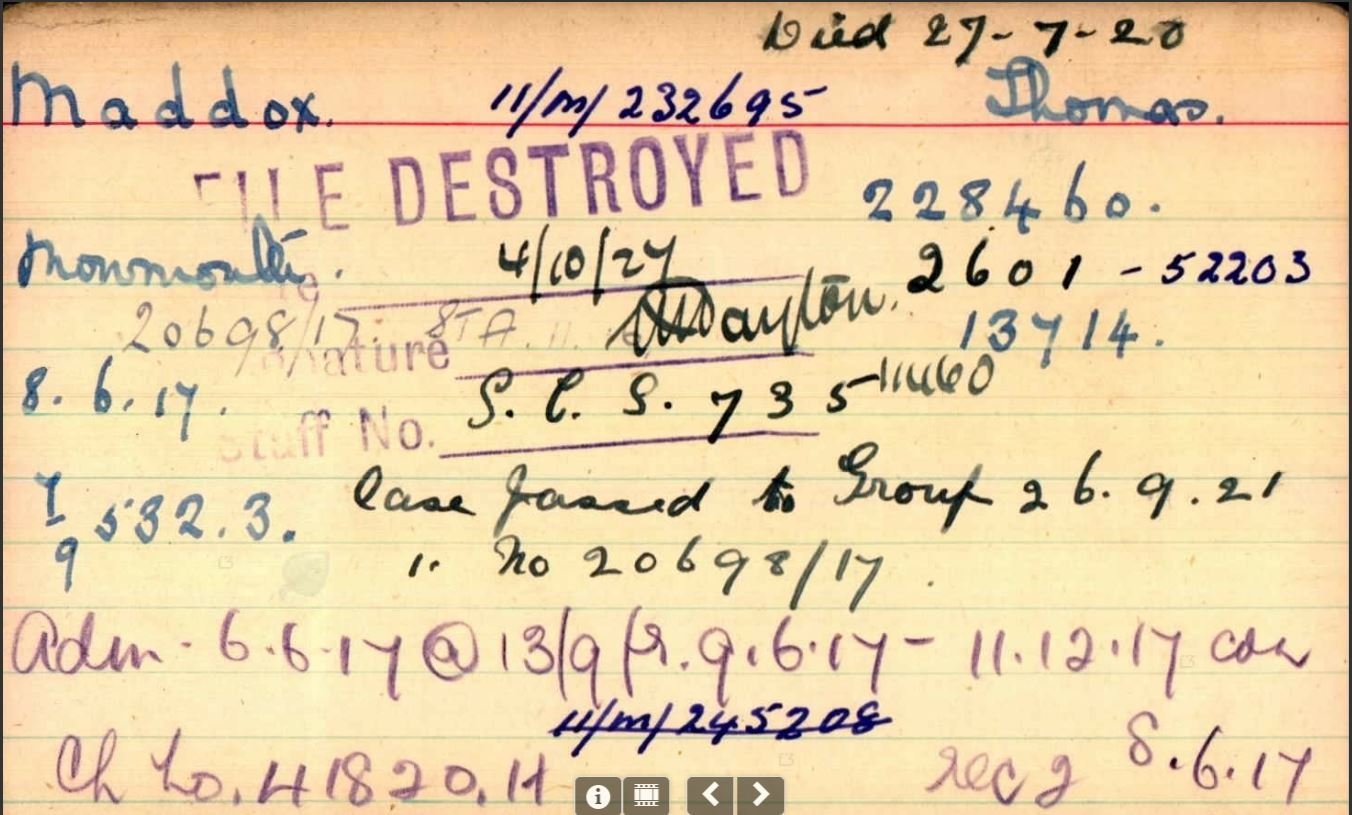 Died 27-7-20
Maddox. 11/M/232695 Thomas.
FILE DESTROYED
228460.
Monmouth. 4/10/27 2601 - 52203
20698/17. STA. 11.
13714.
Signature
8.6.17. S.C.S. 735 11460
Staff No.
Case passed to Group 26.9.21
532.3.
9
" No 20698/17.
Adm. 6.6.17 @ 13/9 fr. 9.6.17 - 11.12.17 con
11/M/245208
Ch Lo. 41820.H rec 8.6.17